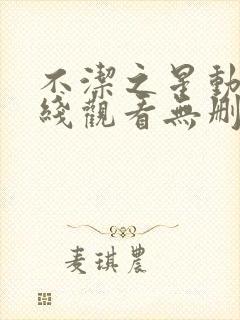 不潔之星動
綫觀看無刪
麦琪農